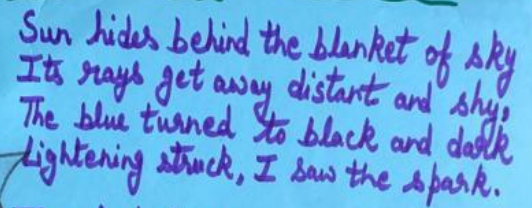 Sun hides behind the blanket of sky
Its rays get away distant and shy,
The blue turned to black and dark
Lightening struck, I saw the spark.